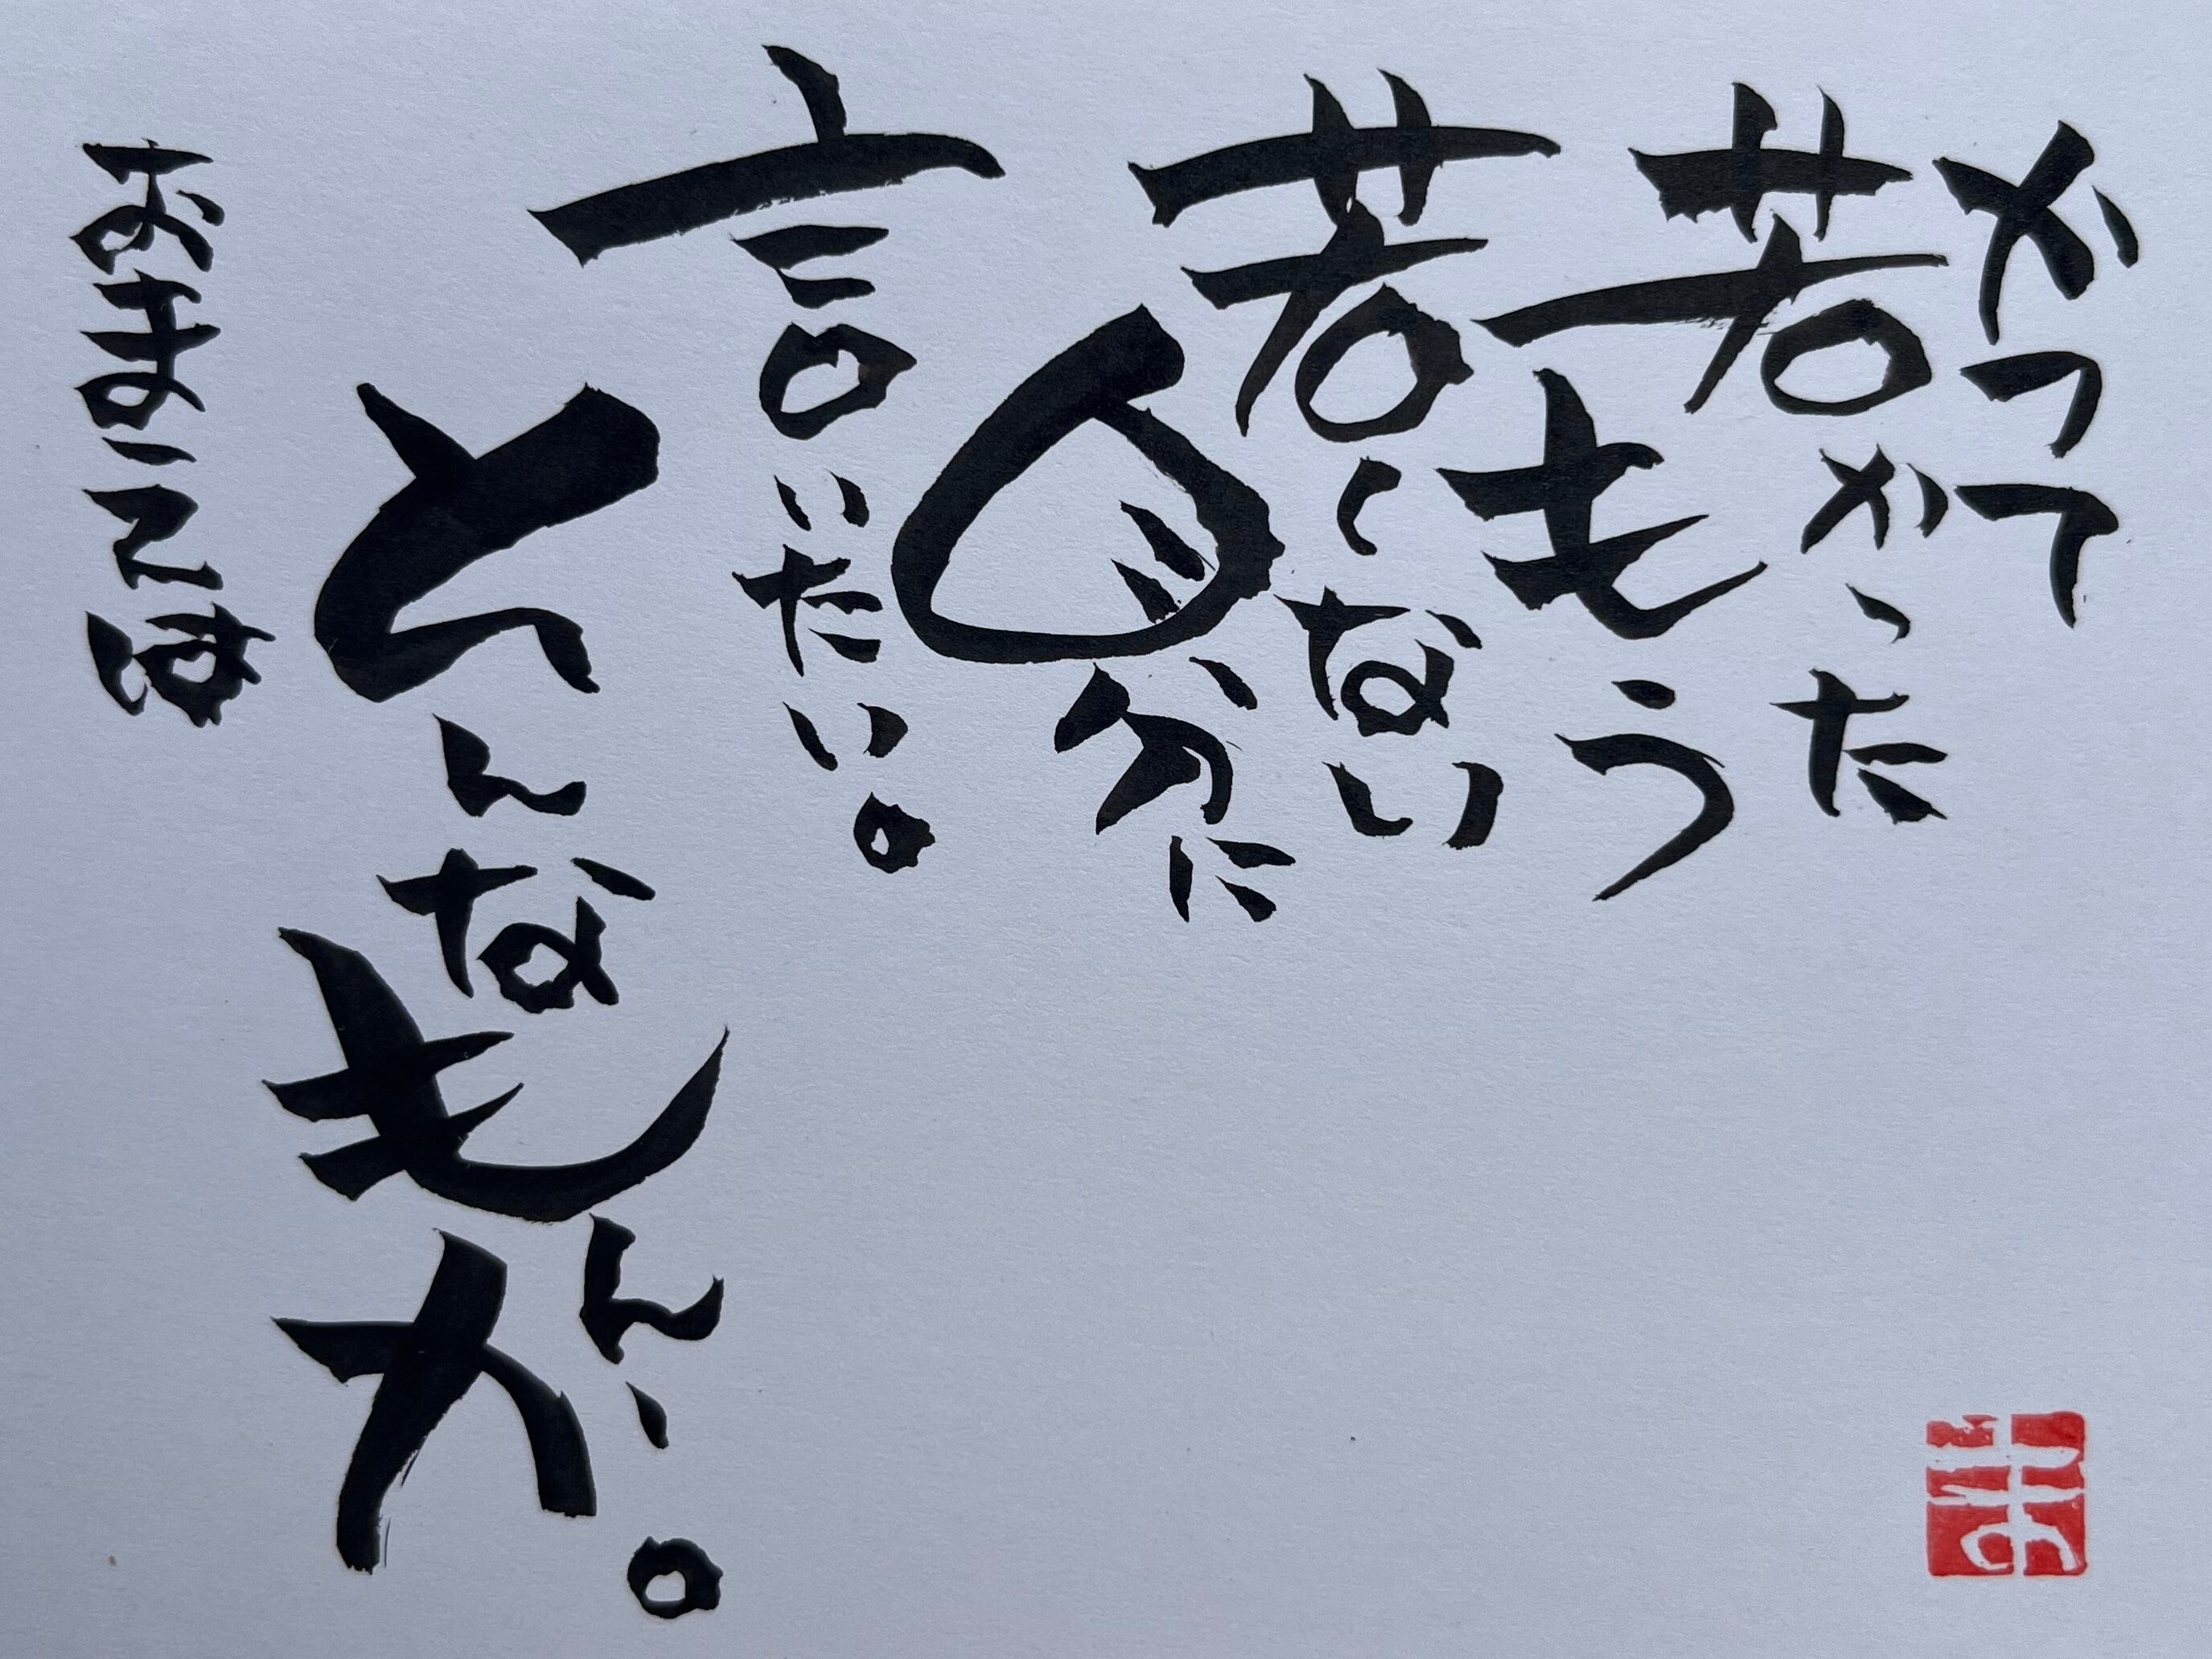 かつて
若かった
もう
若くない
自分に
言いたい。
おまえは
どんなもんが。
ま